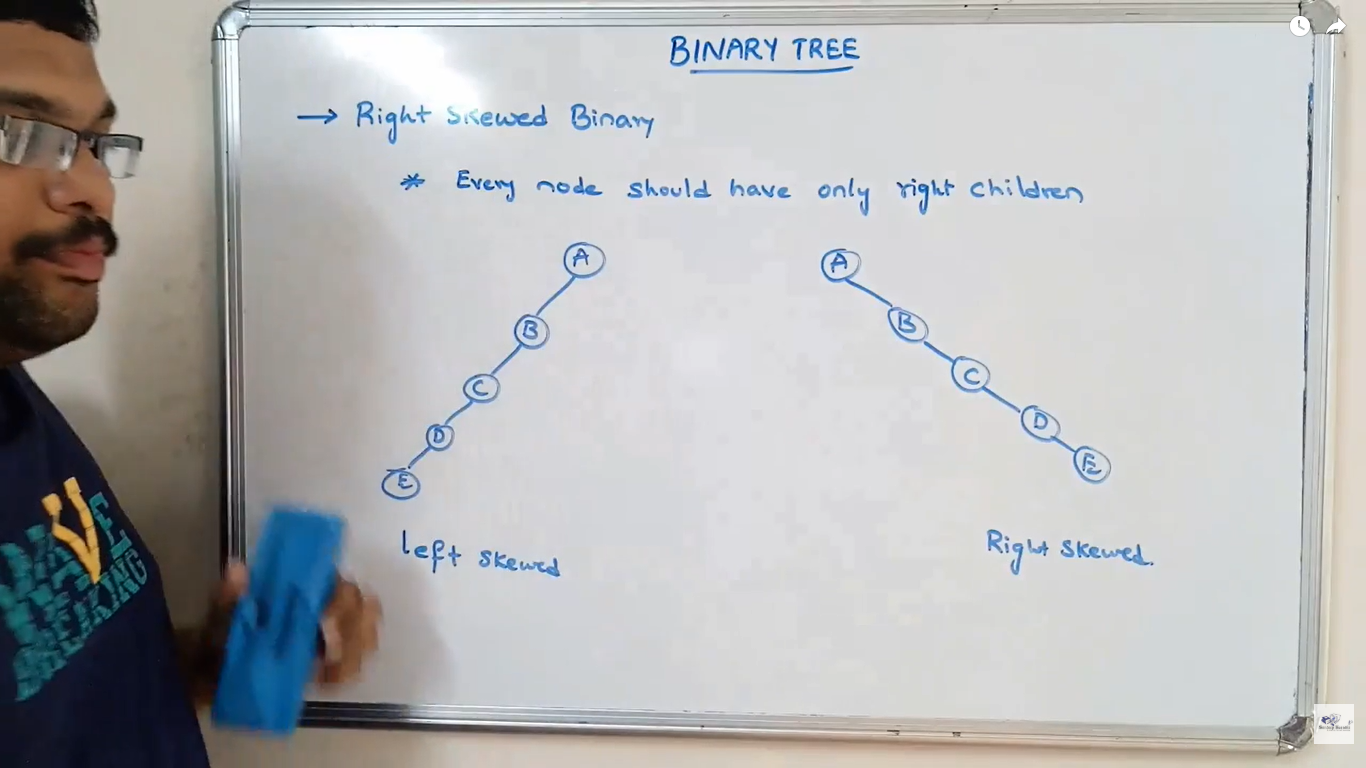 BINARY TREE
→ Right Skewed Binary
* Every node should have only right children
A
B
C
D
E
left skewed
A
B
C
D
E
Right skewed.